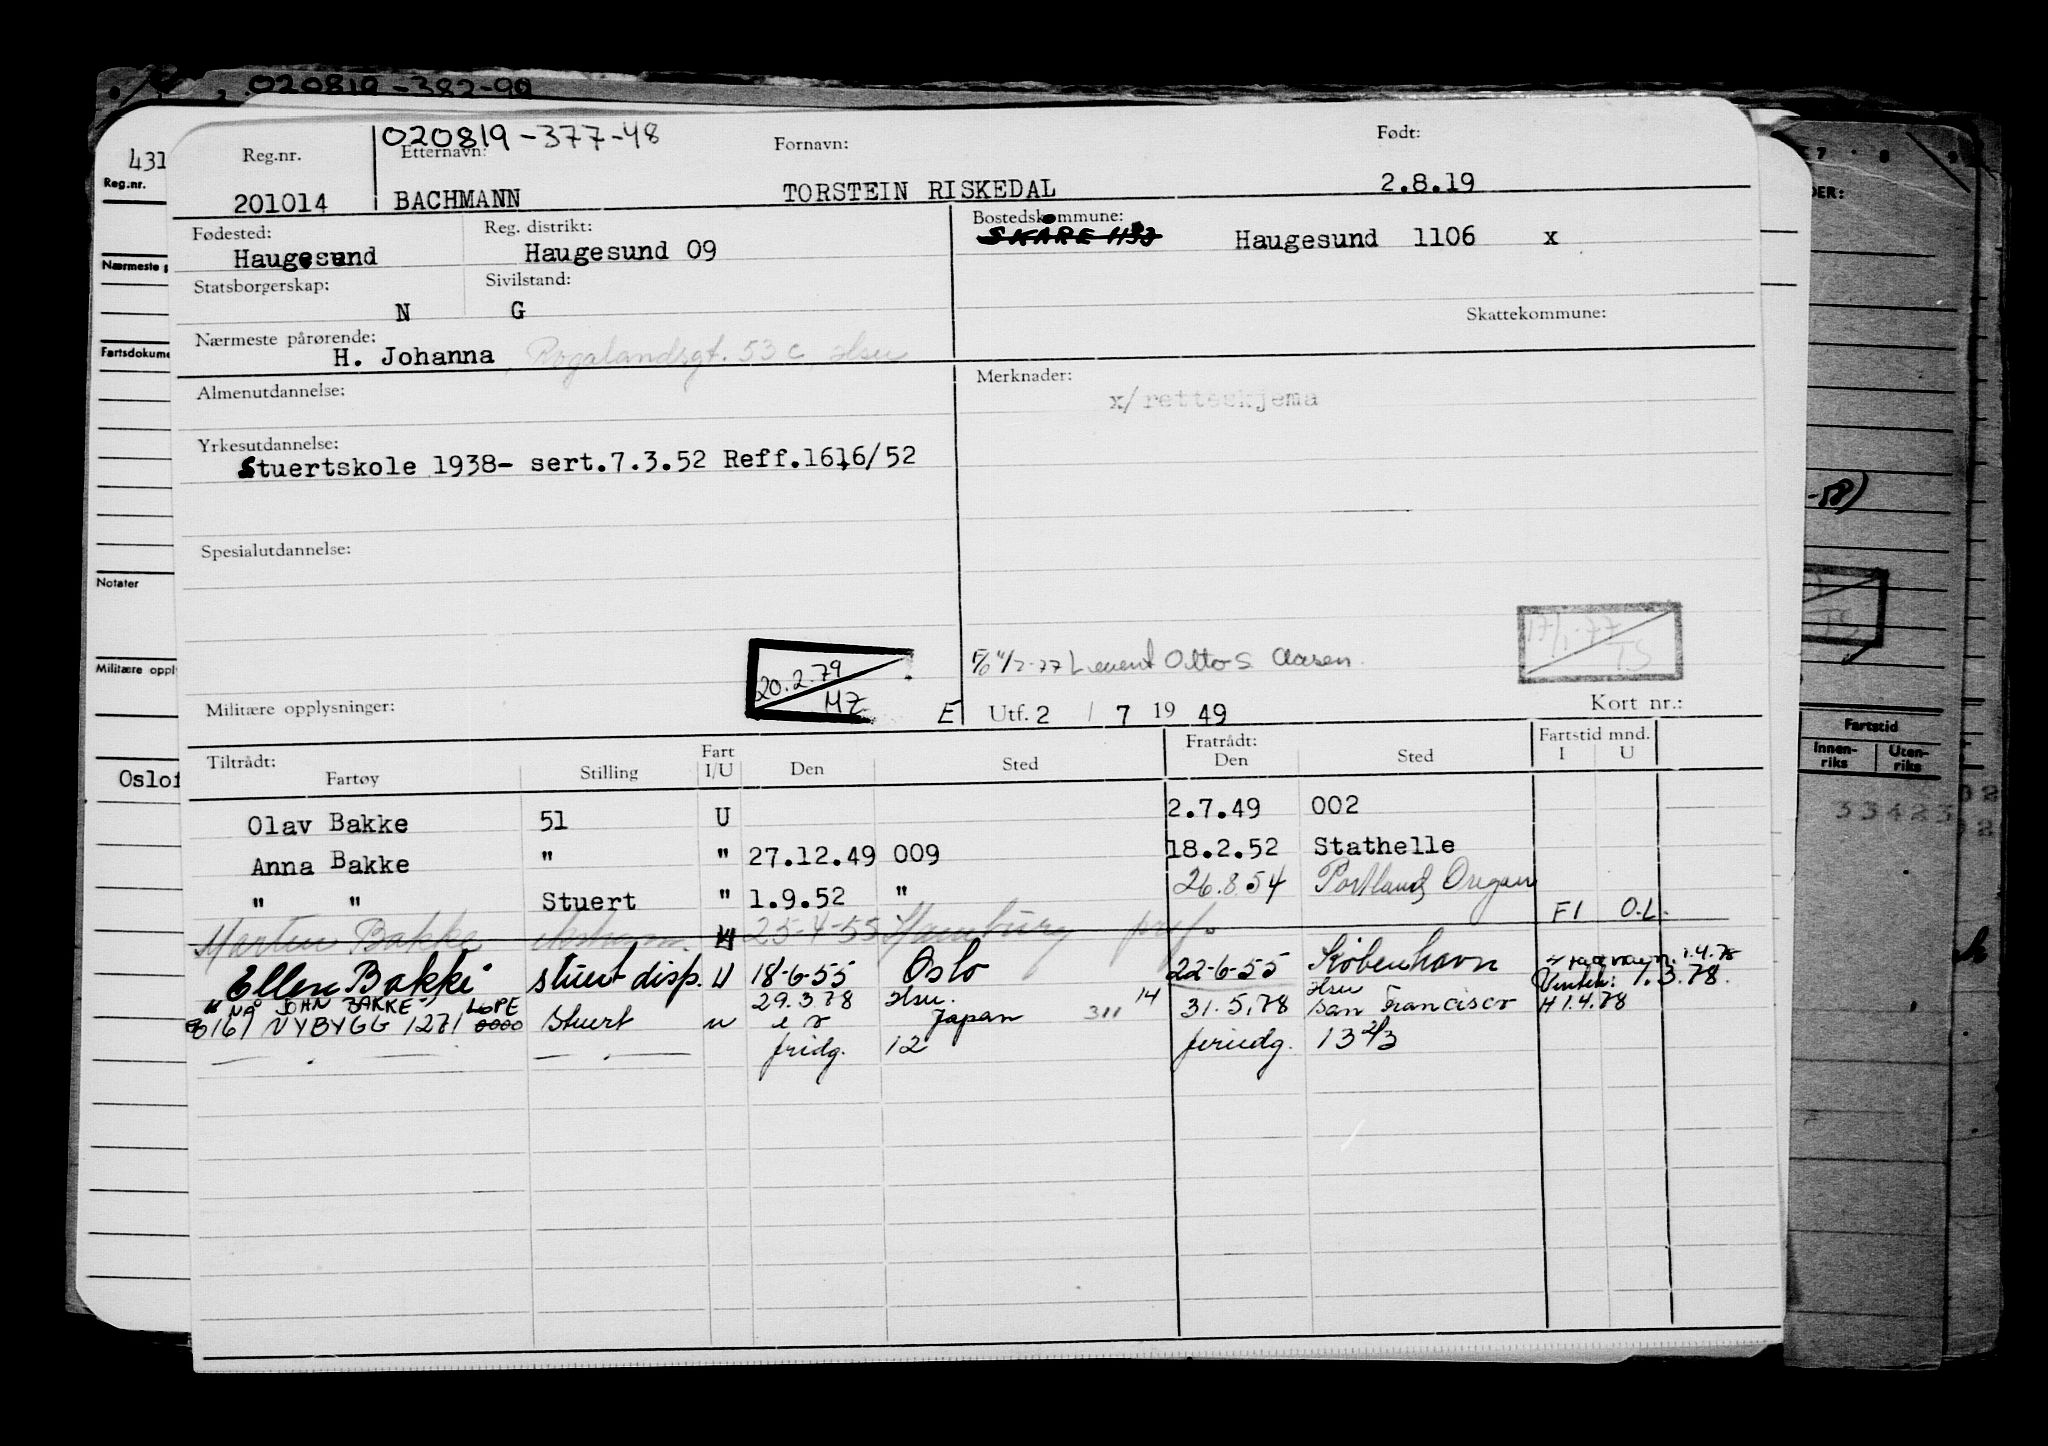 020819-382-90
431
020819-377-48
Reg.nr. Etternavn: Fornavn: Født:
201014 BACHMANN TORSTEIN RISKEDAL 2.8.19
Fødested: Reg. distrikt: Bostedskommune:
Haugesund Haugesund 09 SKARE 1133 Haugesund 1106 x
Statsborgerskap: Sivilstand:
N G
Skattekommune:
Nærmeste pårørende:
H. Johanna, Rogalandsgt. 53 c, Hsu
Almenutdannelse: Merknader:
x/retteskjema
Yrkesutdannelse:
Stuertskole 1938- sert.7.3.52 Reff.1616/52
Spesialutdannelse:
17/1-77 TS
20.2.79 MZ
Otto S. Aasen
Militære opplysninger: E Utf. 2 / 7 19 49 Kort nr.:
Tiltrådt: Fart Fratrådt: Fartstid mnd.
Fartøy Stilling I/U Den Sted Den Sted I U
Olav Bakke 51 U 2.7.49 002
Anna Bakke " " 27.12.49 009 18.2.52 Stathelle
" " Stuert " 1.9.52 " 26.8.54 Portland, Oregon
F1 O.L.
Morten Bakke 25-4-55 Hamburg
Ellen Bakke stuert disp. U 18-6-55 Oslo 22-6-55 København
1.4.78
1.3.78.
"NÅ JOHN BAKKE" LOPE 29.3.78 Hsu. 14 Hsu
NYBYGG 1271 Stuert u Japan 311 31.5.78 San Francisco H 1.4.78
fridg. 12 feriedg. 13 2/3
Reg.nr.
Nærmeste p
Fartsdokume
Notater
Militære oppl
Oslof
7 · 8 9
DER:
-58)
Fartstid
Innen-riks Uten-riks
33423